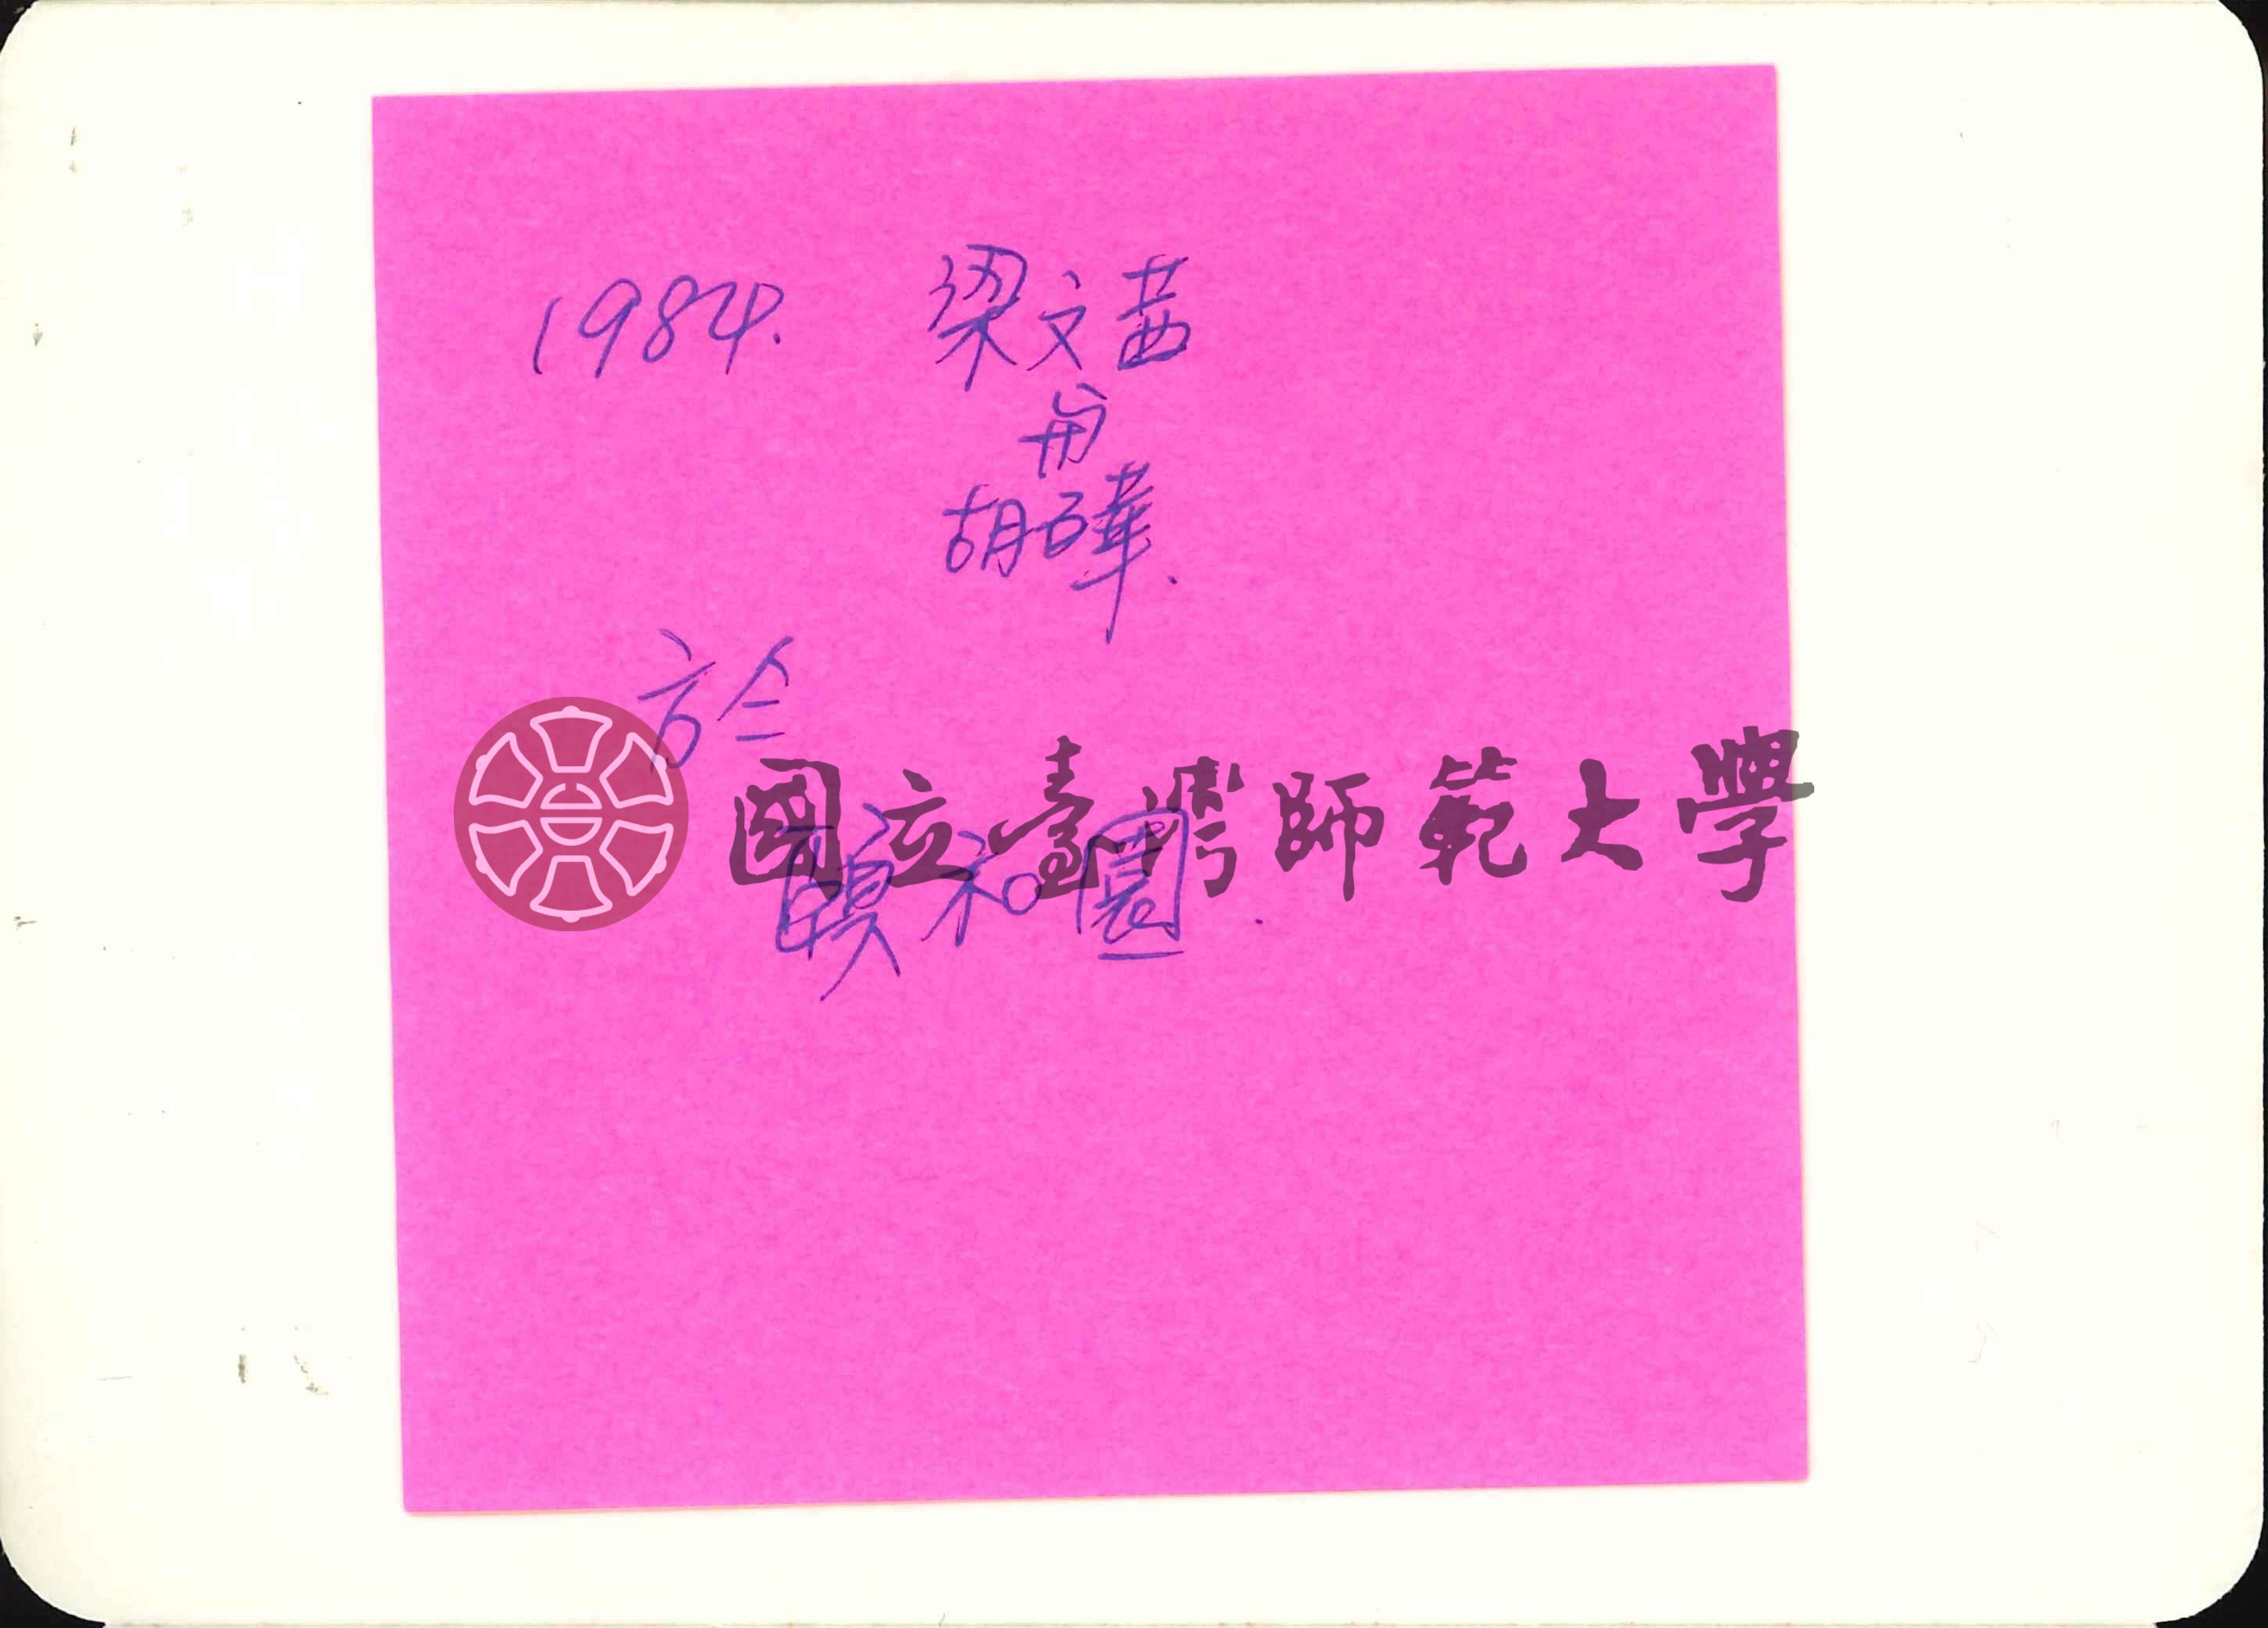 1984. 梁文茜
胡百華.
於
國立臺灣師範大學
頤和園.